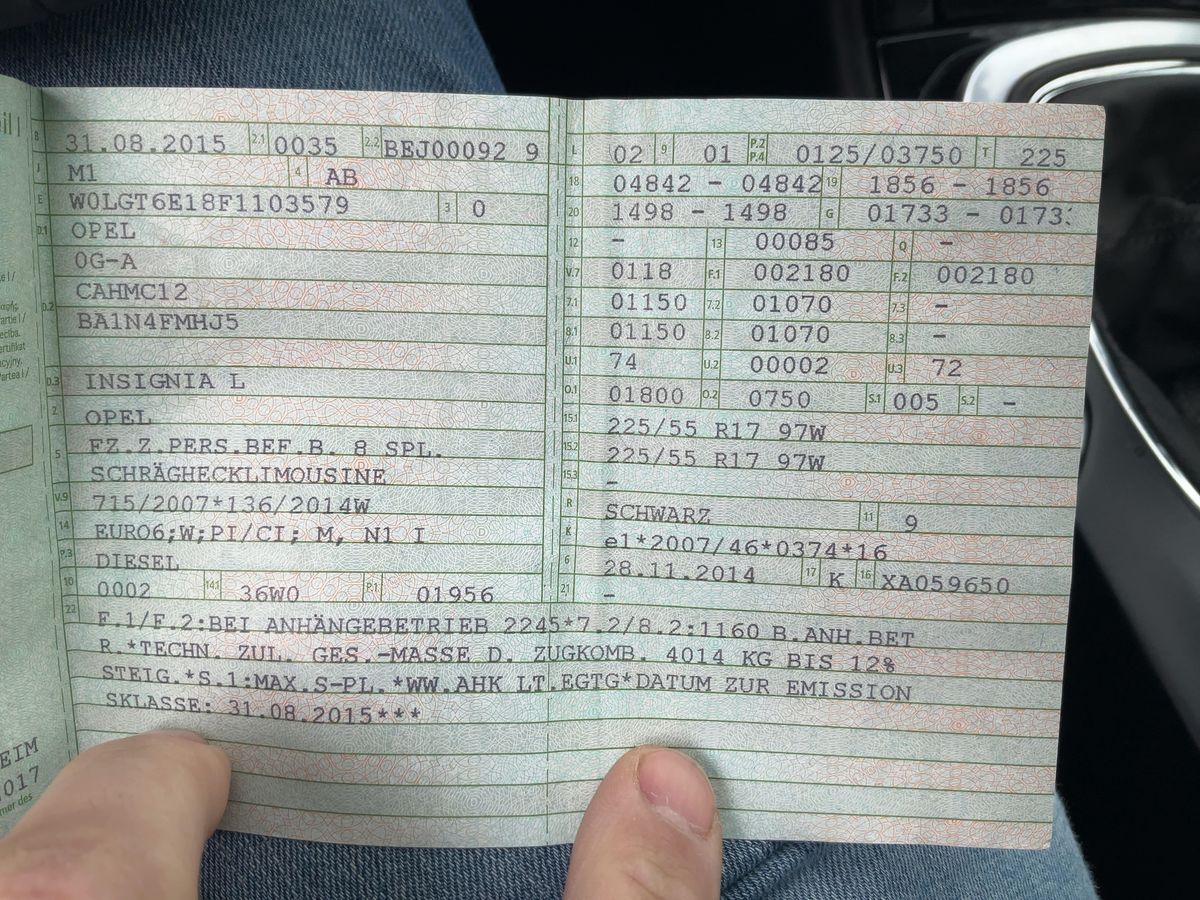 eil I
e I /
mpfig.
Partie I /
ecíba.
ertifikat
cyjny.
Partea I /
EIM
017
mer des
B 31.08.2015 2.1 0035 2.2 BEJ00092 9
J M1 4 AB
E W0LGT6E18F1103579 3 0
D.1 OPEL
0G-A
D.2 CAHMC12
BA1N4FMHJ5
D.3 INSIGNIA L
2 OPEL
5 FZ.Z.PERS.BEF.B. 8 SPL.
SCHRÄGHECKLIMOUSINE
V.9 715/2007*136/2014W
14 EURO6;W;PI/CI; M, N1 I
P.3 DIESEL
10 0002 14.1 36W0 P.1 01956
L 02 9 01 P.2 P.4 0125/03750 T 225
18 04842 - 04842 19 1856 - 1856
20 1498 - 1498 G 01733 - 0173
12 - 13 00085 Q -
V.7 0118 F.1 002180 F.2 002180
7.1 01150 7.2 01070 7.3 -
8.1 01150 8.2 01070 8.3 -
U.1 74 U.2 00002 U.3 72
O.1 01800 O.2 0750 S.1 005 S.2 -
15.1 225/55 R17 97W
15.2 225/55 R17 97W
15.3 -
R SCHWARZ 11 9
K e1*2007/46*0374*16
6 28.11.2014 17 K 16 XA059650
21 -
22 F.1/F.2:BEI ANHÄNGEBETRIEB 2245*7.2/8.2:1160 B.ANH.BET
R.*TECHN. ZUL. GES.-MASSE D. ZUGKOMB. 4014 KG BIS 12%
STEIG.*S.1:MAX.S-PL.*WW.AHK LT.EGTG*DATUM ZUR EMISSION
SKLASSE: 31.08.2015***